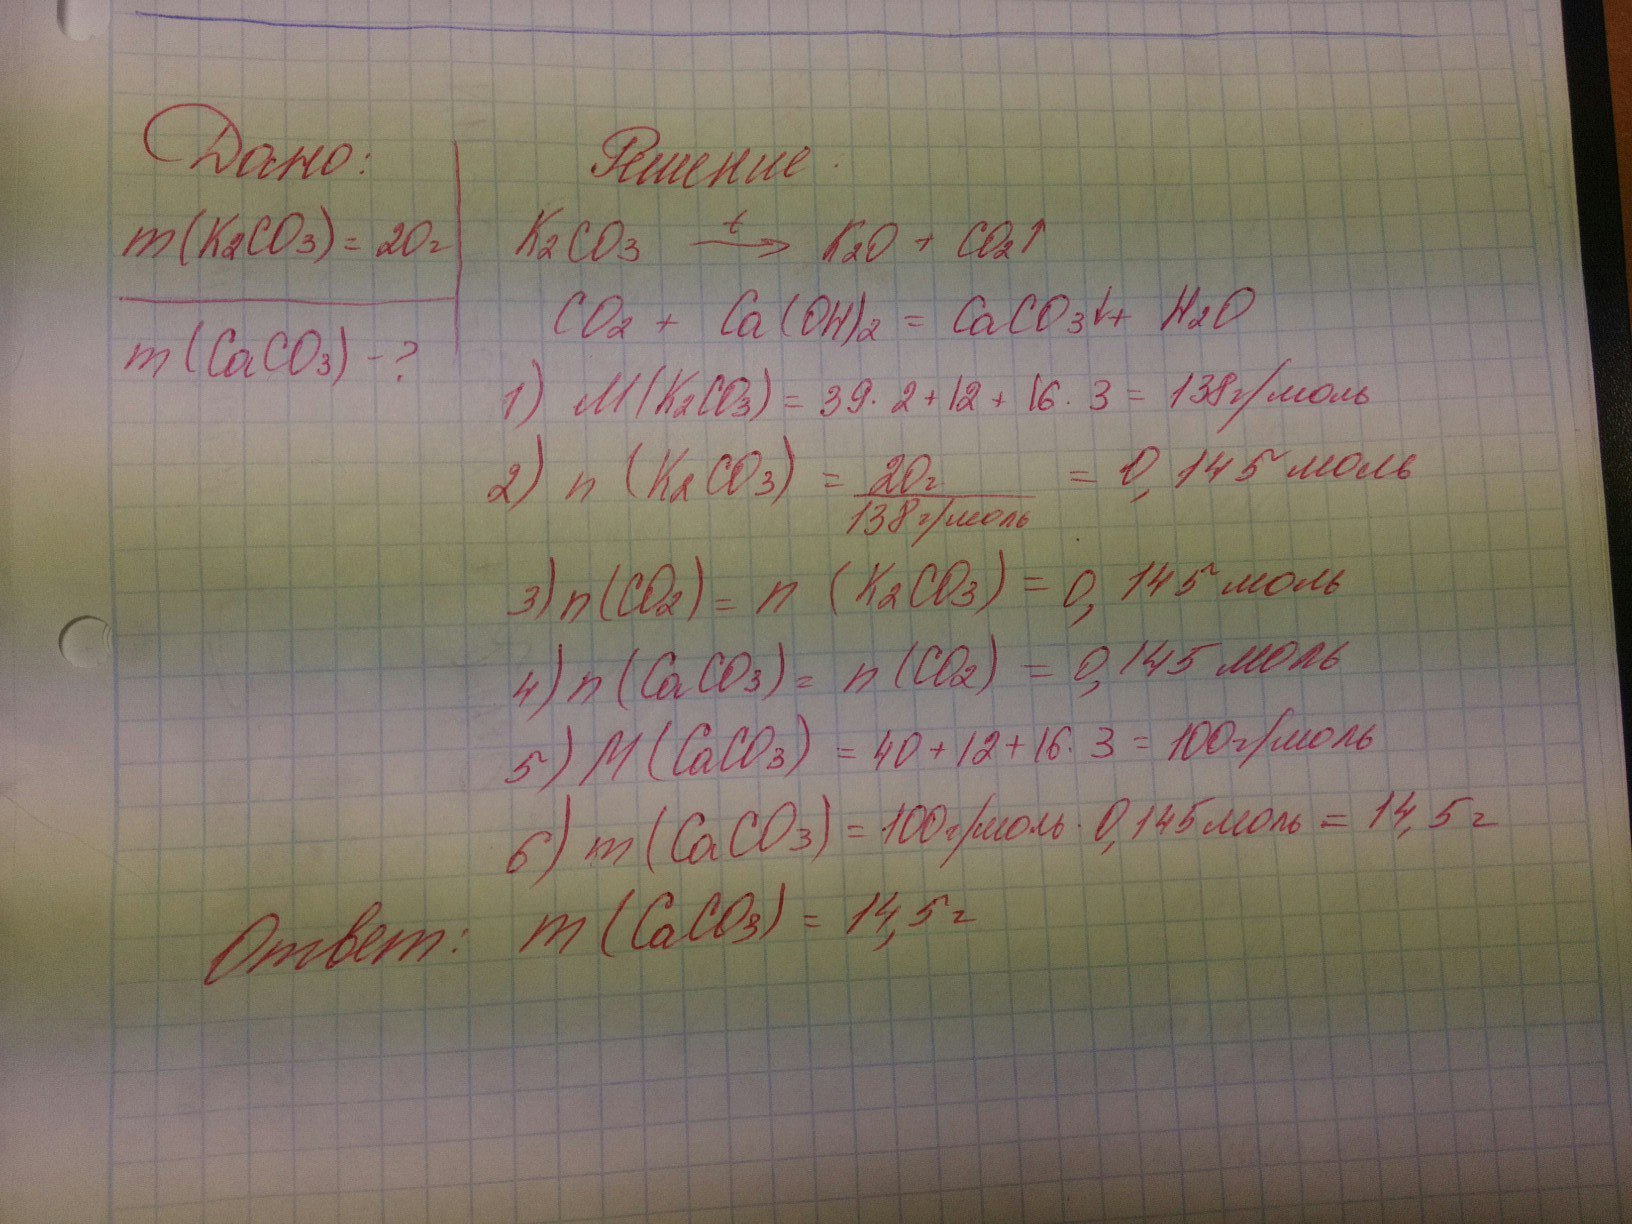 Дано:
m(K2CO3) = 20г
m(CaCO3) - ?
Решение.
K2CO3 t→ K2O + CO2↑
CO2 + Ca(OH)2 = CaCO3↓ + H2O
1) M(K2CO3) = 39·2+12+16·3 = 138г/моль
2) n(K2CO3) = 20г/138г/моль = 0,145 моль
3) n(CO2) = n(K2CO3) = 0,145 моль
4) n(CaCO3) = n(CO2) = 0,145 моль
5) M(CaCO3) = 40+12+16·3 = 100г/моль
6) m(CaCO3) = 100г/моль · 0,145 моль = 14,5г
Ответ: m(CaCO3) = 14,5г